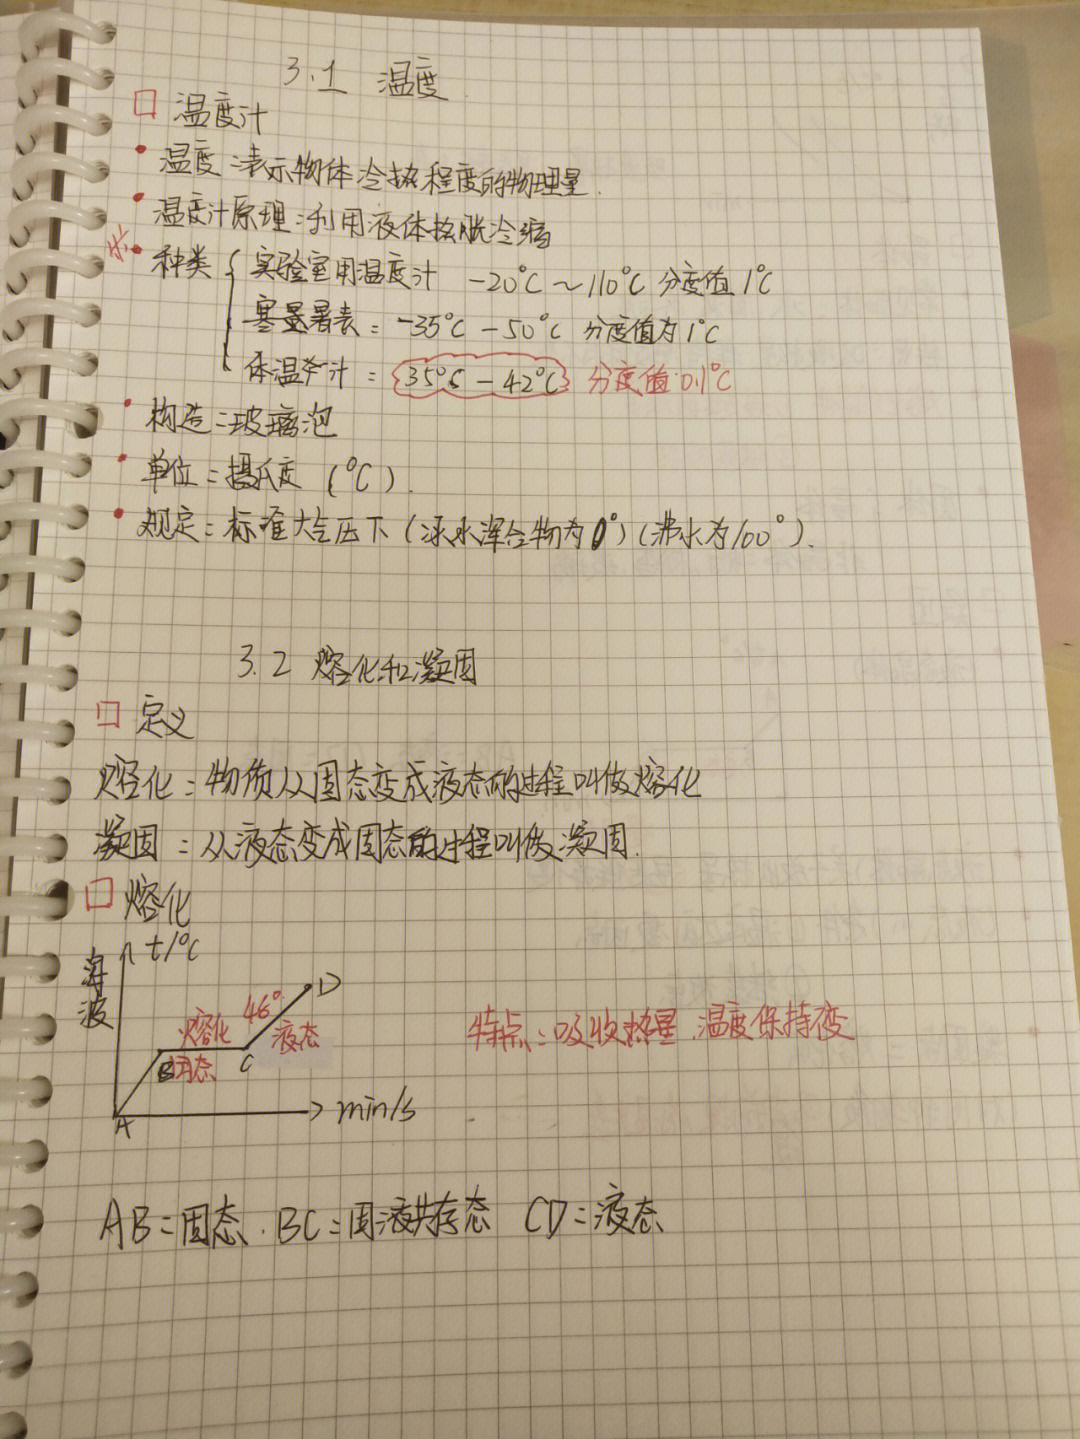 3.1 温度
温度计
温度:表示物体冷热程度的物理量.
温度计原理:利用液体热胀冷缩
种类 { 实验室用温度计 -20°C~110°C 分度值1°C
寒暑表: -35°C - 50°C 分度值为1°C
体温计: 35°C - 42°C 分度值0.1°C
构造:玻璃泡
单位:摄氏度 (°C).
规定:标准大气压下(冰水浑合物为0°)(沸水为100°).
3.2 熔化和凝固
定义
熔化:物质从固态变成液态的过程叫做熔化
凝固:从液态变成固态的过程叫做凝固.
熔化
海波
t/°C
熔化
46°
D
液态
B
固态
C
A
min/s
特点:吸收热量,温度保持变
AB=固态. BC=固液共存态 CD=液态